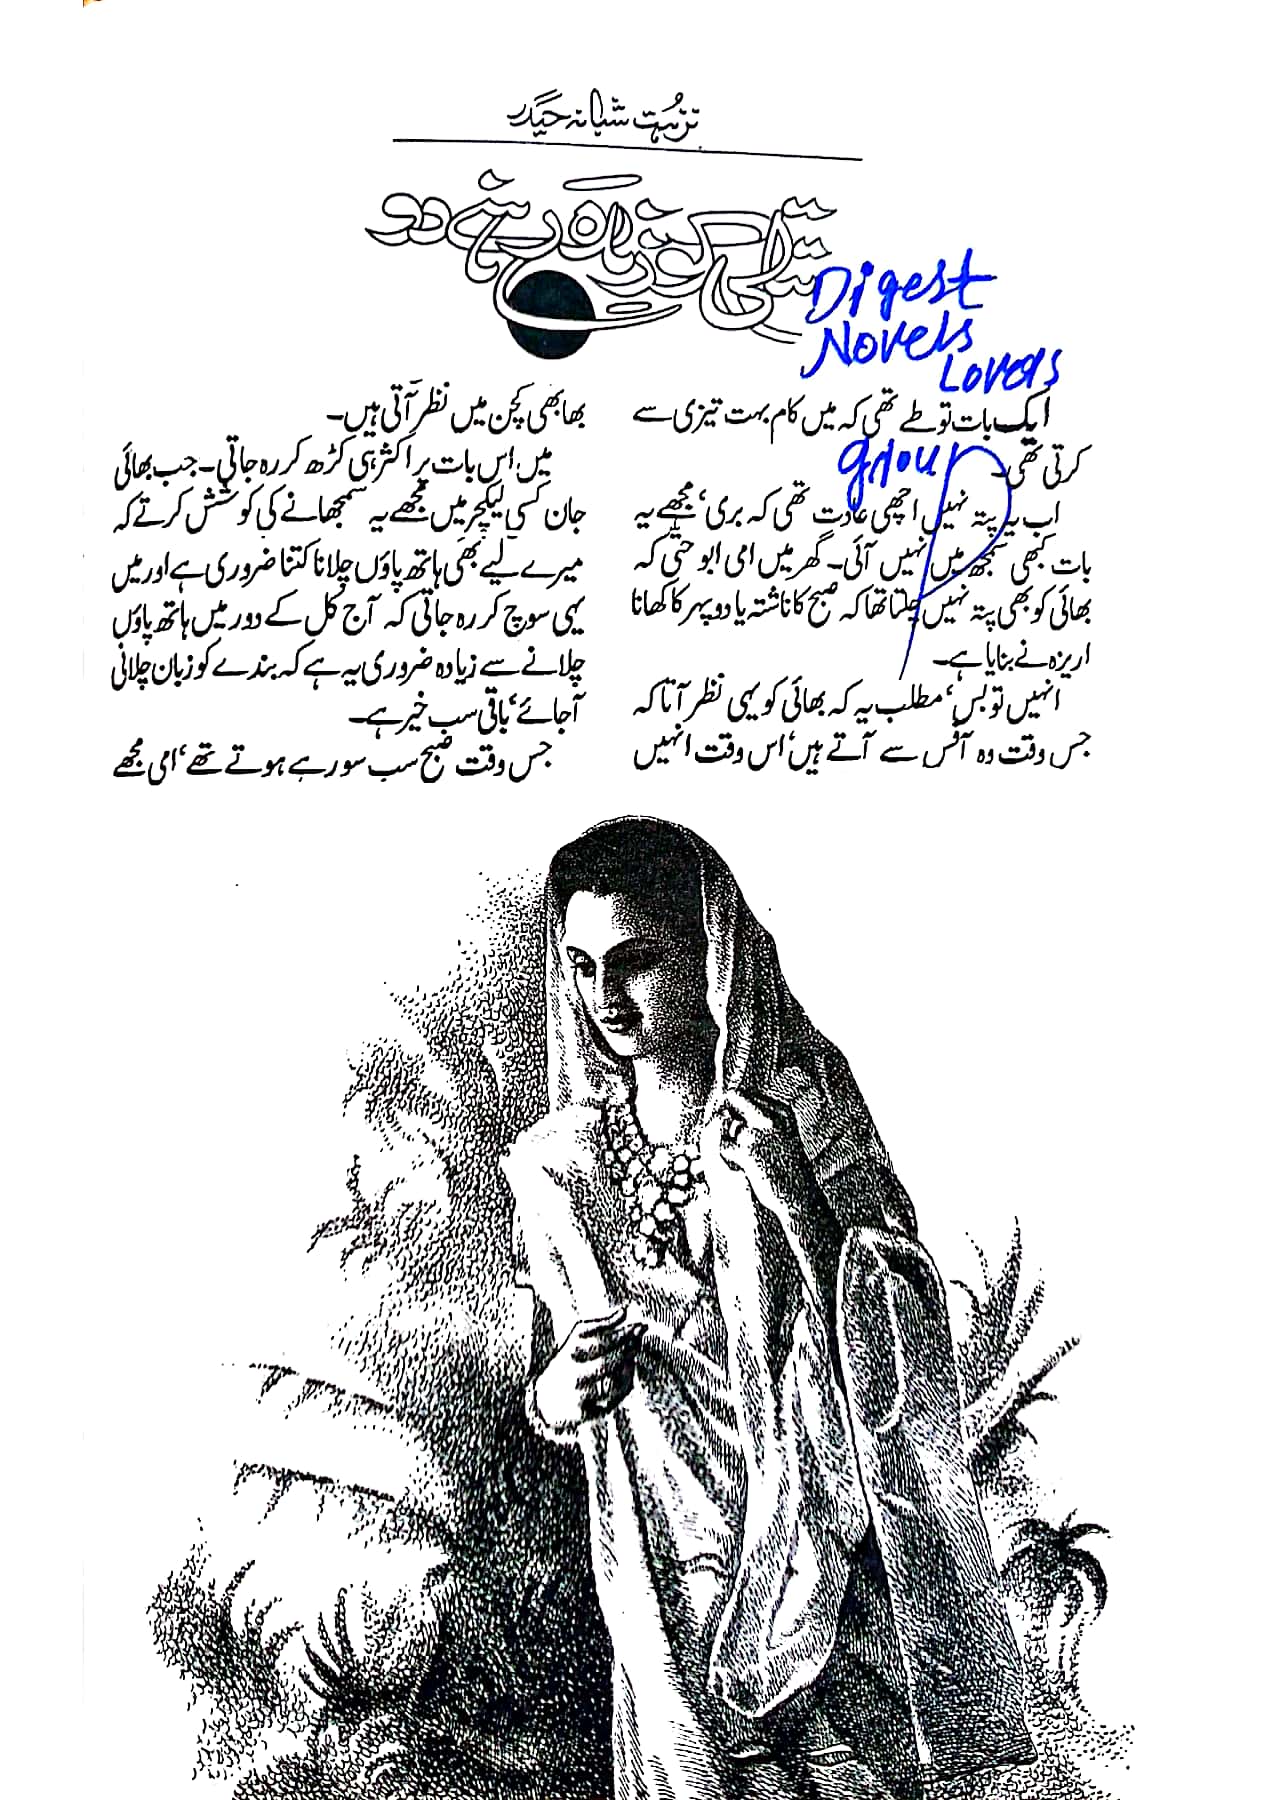 نزہت شبانہ حیدر
تتلی کو زندہ رہنے دو
Digest
Novels
Lovers
group
ایک بات تو طے تھی کہ میں کام بہت تیزی سے
کرتی تھی۔
اب یہ پتہ نہیں اچھی عادت تھی کہ بری، مجھے یہ
بات کبھی سمجھ میں نہیں آئی۔ گھر میں امی ابو حتیٰ کہ
بھائی کو بھی پتہ نہیں چلتا تھا کہ صبح کا ناشتہ یا دوپہر کا کھانا
اریزہ نے بنایا ہے۔
انہیں تو بس، مطلب یہ کہ بھائی کو یہی نظر آتا کہ
جس وقت وہ آفس سے آتے ہیں، اس وقت انہیں
بھابھی کچن میں نظر آتی ہیں۔
میں اس بات پر اکثر ہی کڑھ کر رہ جاتی۔ جب بھائی
جان کسی لیکچر میں مجھے یہ سمجھانے کی کوشش کرتے کہ
میرے لیے بھی ہاتھ پاؤں چلانا کتنا ضروری ہے اور میں
یہی سوچ کر رہ جاتی کہ آج کل کے دور میں ہاتھ پاؤں
چلانے سے زیادہ ضروری یہ ہے کہ بندے کو زبان چلانی
آجائے، باقی سب خیر ہے۔
جس وقت صبح سب سو رہے ہوتے تھے، امی مجھے